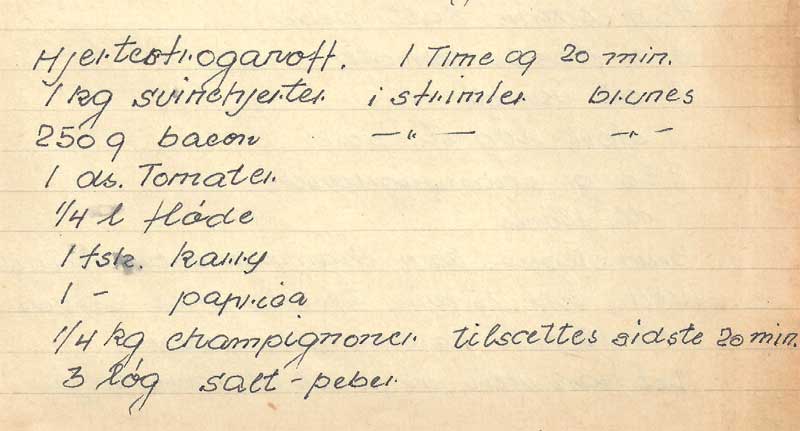 Hjertestroganoff. 1 Time og 20 min.
1 kg svinehjerter i strimler brunes
250 g bacon —"— —"—
1 ds. Tomater.
1/4 l fløde
1 tsk. karry
1 - paprica
1/4 kg champignoner tilsættes sidste 20 min.
3 løg salt - peber